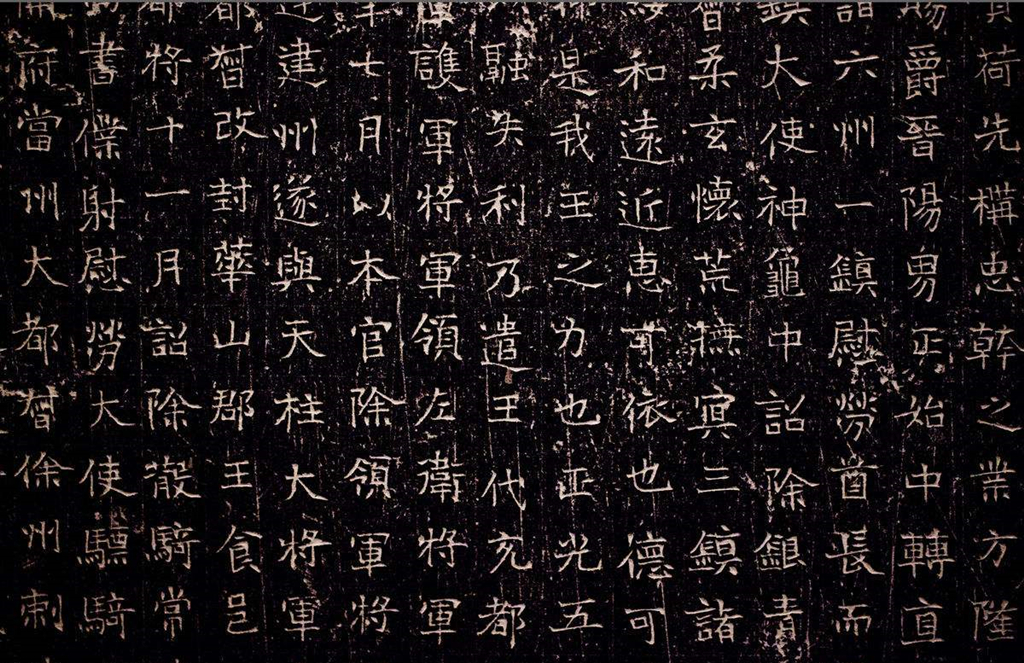 荷先構忠幹之業方隆
賜爵晉陽男正始中轉直
詔六州一鎮慰勞酋長而
鎮大使神龜中詔除銀青
督柔玄懷荒撫冥三鎮諸
綏和遠近惠可依也德可
是我王之力也正光五
融失利乃遣王代充都
護軍將軍領左衛將軍
年七月以本官除領軍將
建州遂與天柱大將軍
都督改封華山郡王食邑
都將十一月詔除散騎常
書僕射慰勞大使驃騎
府當州大都督徐州刺